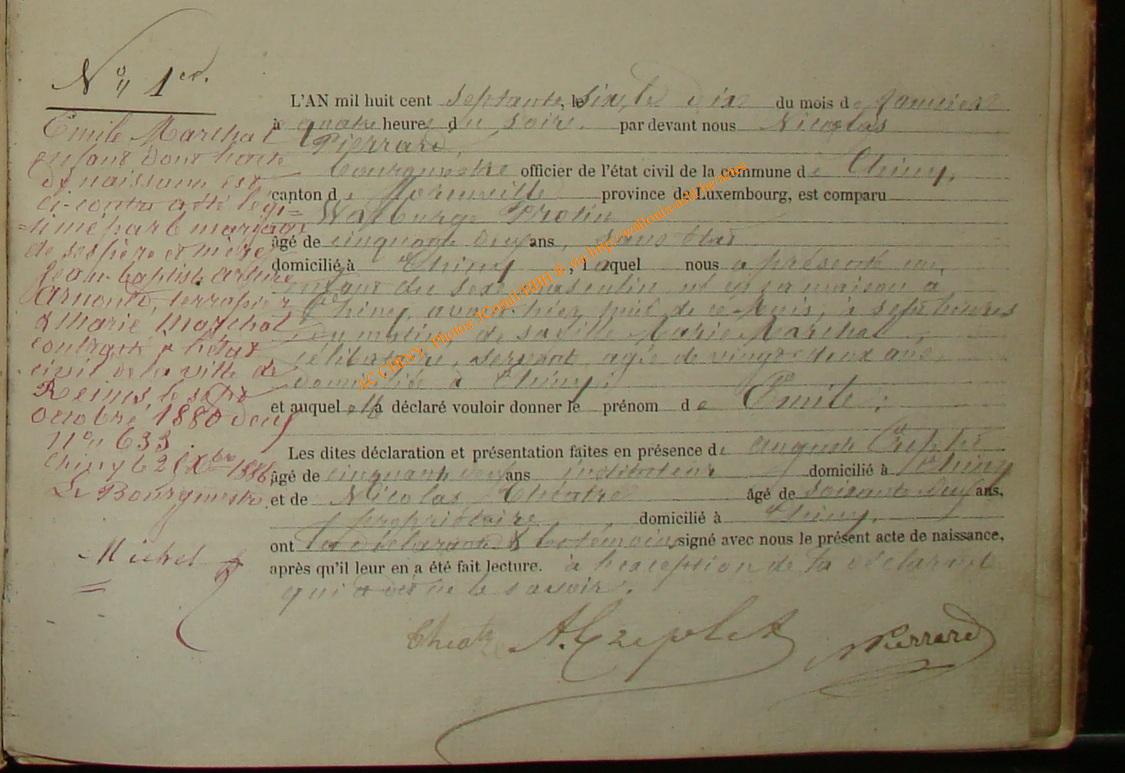 N° 1er.
Emile Marchal
enfant dont l'acte
de naissance est
ci-contre a été légi=
=timé par le mariage
de ses père et mère
Jean Baptiste
Arnould, terrassier
& Marie Marchal
contracté à l'état
civil de la ville de
Reims, le sept
octobre 1880
n° 633
Chiny Xbre 1886
Le Bourgmestre
Michel
L'AN mil huit cent septante six, le dix du mois de Janvier
à quatre heures du soir. par devant nous Nicolas
Pierrard,
bourgmestre officier de l'état civil de la commune de Chiny,
canton de Florenville province de Luxembourg, est comparu
Walburge Protin
âgé de cinquante deux ans, sans état
domicilié à Chiny, laquel nous a présenté un
enfant du sexe masculin né en sa maison à
Chiny, avant hier, huit de ce mois, à sept heures
du matin de Marie Marchal
célibataire, servante, agée de vingt deux ans,
domiciliée à Chiny;
et auquel elle a déclaré vouloir donner le prénom de Emile.
Les dites déclaration et présentation faites en présence de auguste Créplet
âgé de cinquante deux ans instituteur domicilié à Chiny
et de Nicolas Théatre âgé de soixante deux ans,
propriétaire domicilié à Chiny.
ont les témoins signé avec nous le présent acte de naissance,
après qu'il leur en a été fait lecture. à l'exception de la déclarant
qui a dit ne le savoir.
Théatre A. Créplet N Pierrard